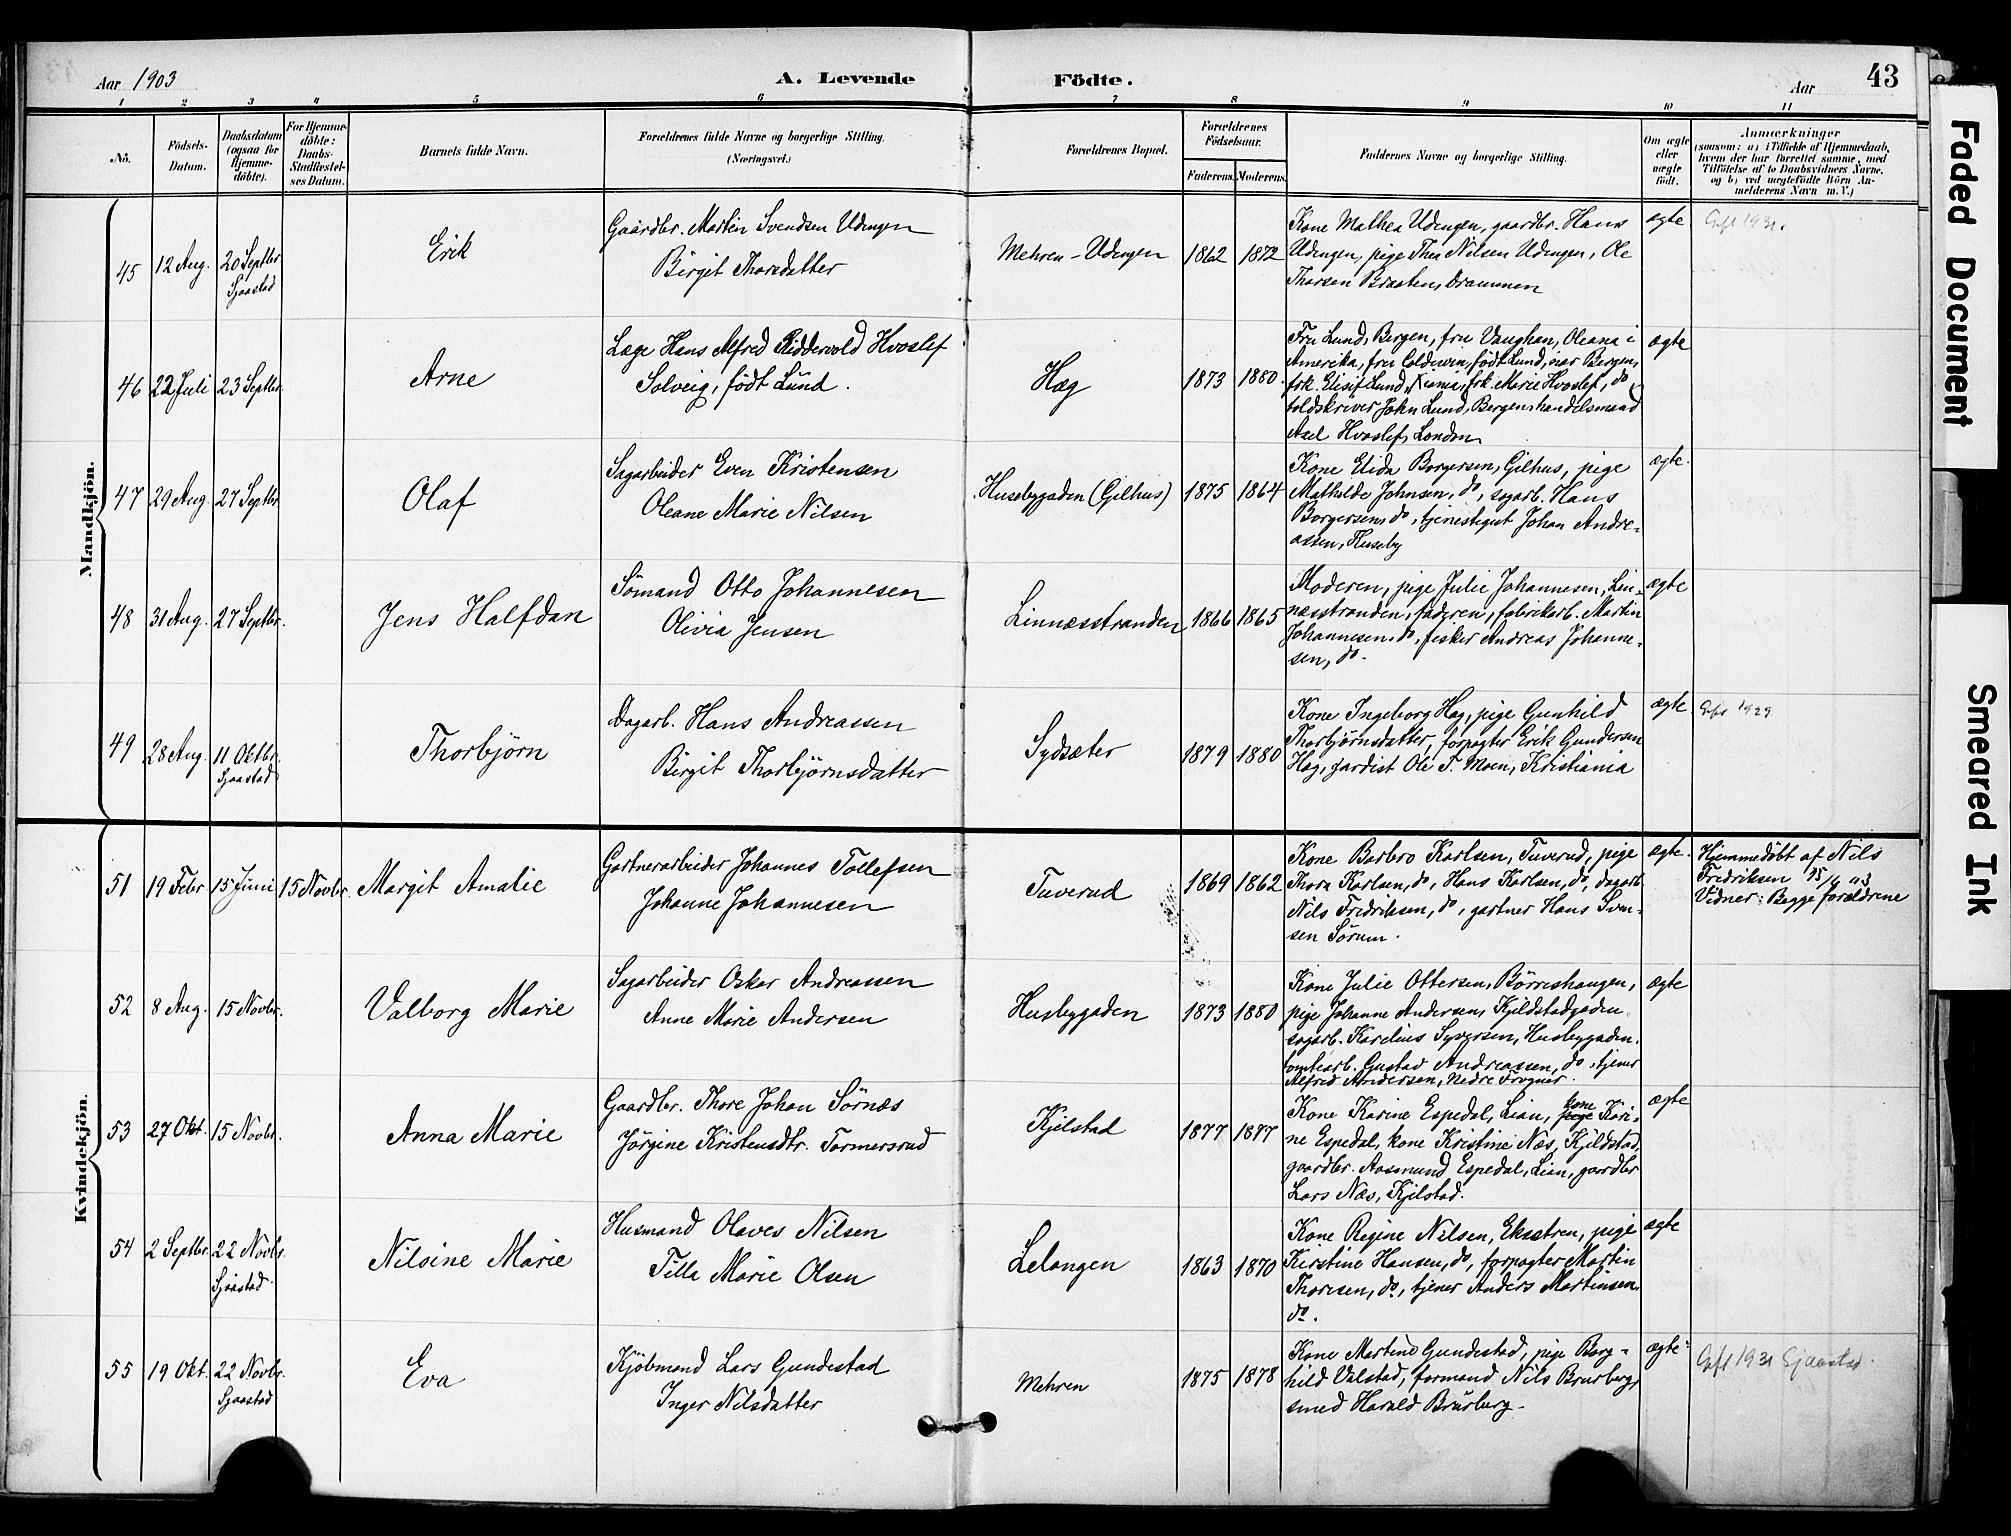 Aar 1903
A. Levende
Födte.
Aar
43
1 2 3 4 5 6 7 8 9 10 11
No.
Födsels-
Datum.
Daabsdatum
(ogsaa for
Hjemme-
döbte).
For Hjemme-
döbte:
Daabs-
Stadfæstel-
ses Datum.
Barnets fulde Navn.
Forældrenes fulde Navne og borgerlige Stilling.
(Næringsvei.)
Forældrenes Bopæl.
Forældrenes
Födselsaar.
Faderens. Moderens.
Faddernes Navne og borgerlige Stilling.
Om ægte
eller
uægte
född.
Anmærkninger
(saasom: a) i Tilfælde af Hjemmedaab,
hvem der har forrettet samme, med
Tilföielse af to Daabsvidners Navne,
og b) ved uægtefödte Börn An-
melderens Navn m. V.)
Mandkjön.
45
12 Aug.
20 Septbr.
Sjaastad
Erik
Gaardbr. Martin Svendsen Udengen
Birgit Thorsdatter
Mehren - Udengen
1862 1872
Kone Mathea Udengen, gaardbr. Hans
Udengen, pige Thea Nilsen Udengen, Ole
Thorsen Braaten, Drammen
ægte
Gift 1931.
46
22 Juli
23 Septbr.
Arne
Læge Hans Alfred Riddervold Hvoslef
Solveig, född Lund.
Hæg
1873 1880.
Fru Lund, Bergen, fru Vaughan, Oleana i
Amerika, fru Coldewin, född Lund, nær Bergen,
frk. Elisif Lund, Kr.ania, frk. Marie Hvoslef, do,
toldskriver John Lund, Bergen, handelsmand
Axel Hvoslef, London
ægte
47
29 Aug.
27 Septbr.
Olaf
Sagarbeider Even Kristensen
Oleane Marie Nilsen
Husebygaden (Gilhus)
1875 1864
Kone Elida Borgersen, Gilhus, pige
Mathilde Johnsen, do, sagarb. Hans
Borgersen, do, tjenestegut Johan Andre-
assen, Huseby
ægte.
48
31 Aug.
27 Septbr.
Jens Halfdan
Sömand Otto Johannesen
Olivia Jensen
Linnæsstranden
1866 1865
Moderen, pige Julie Johannesen, Lin-
næsstranden, faderen, fabrikarb. Martin
Johannesen, do, fisker Andreas Johanne-
sen, do.
ægte
49
28 Aug.
11 Oktbr.
Sjaastad
Thorbjørn
Dagarb. Hans Andreassen
Birgit Thorbjørnsdatter
Sydsæter
1879 1880
Kone Ingeborg Hag, pige Gunhild
Thorbjørnsdatter, forpagter Erik Gundersen
Hag, gardist Ole T. Moen, Kristiania
ægte
Gift 1929
Kvindekjön.
51
19 Febr
15 Juni
15 Novbr.
Margit Amalie
Gartnerarbeider Johannes Tollefsen
Johanne Johannesen
Tuverud
1869 1862
Kone Barbro Karlsen, Tuverud, pige
Thora Karlsen, do, Hans Karlsen, do, dagarb.
Nils Fredriksen, do, gartner Hans Sven-
sen Sörum.
ægte.
Hjemmedöbt af Nils
Fredriksen 15/6 03
Vidner: Begge forældrene
52
8 Aug.
15 Novbr.
Valborg Marie
Sagarbeider Oskar Andreassen
Anne Marie Andersen
Husbygaden
1873 1880
Kone Julie Ottersen, Børreshaugen,
pige Johanne Andersen, Kjeldstadgaden,
sagarb. Karelius Syversen, Husbygaden,
tomtearb. Gustav Andreassen, do, tjener
Alfred Andersen, Nedre Frogner.
ægte
53
27 Okt.
15 Novbr.
Anna Marie
Gaardbr. Thore Johan Sörnæs
Jörgine Kristensdtr. Tormersrud
Kjelstad
1877 1877
Kone Karine Espedal, Lian, pige kone Kari-
ne Espedal, kone Kristine Næs, Kjeldstad,
gaardbr. Aasmund Espedal, Lian, gaardbr.
Lars Næs, Kjelstad.
ægte
54
2 Septbr.
22 Novbr.
Sjaastad.
Nilsine Marie
Husmand Olaves Nilsen
Tilla Marie Olsen
Lelangen
1863 1870
Kone Regine Nilsen, Eksætren, pige
Kirstine Hansen, do, forpagter Martin
Thoresen, do, tjener Anders Martinsen,
do.
ægte
55
19 Okt.
22 Novbr.
Sjaastad
Eva
Kjöbmand Lars Gundestad
Inger Nilsdatter
Mehren
1875 1878
Kone Martine Gundestad, pige Borg-
hild Valstad, formand Nils Brurberg,
smed Harald Brurberg.
ægte
Gift 1931 Sjaastad.
Faded Document
Smeared Ink